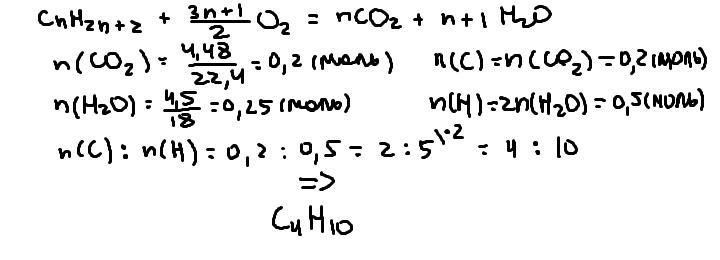 CnH2n+2 + 3n+1/2 O2 = nCO2 + n+1 H2O
n(CO2) = 4,48/22,4 = 0,2 (моль) n(C) = n(CO2) = 0,2 (моль)
n(H2O) = 4,5/18 = 0,25 (моль) n(H) = 2n(H2O) = 0,5 (моль)
n(C) : n(H) = 0,2 : 0,5 = 2 : 5 |·2 = 4 : 10
=>
C4H10